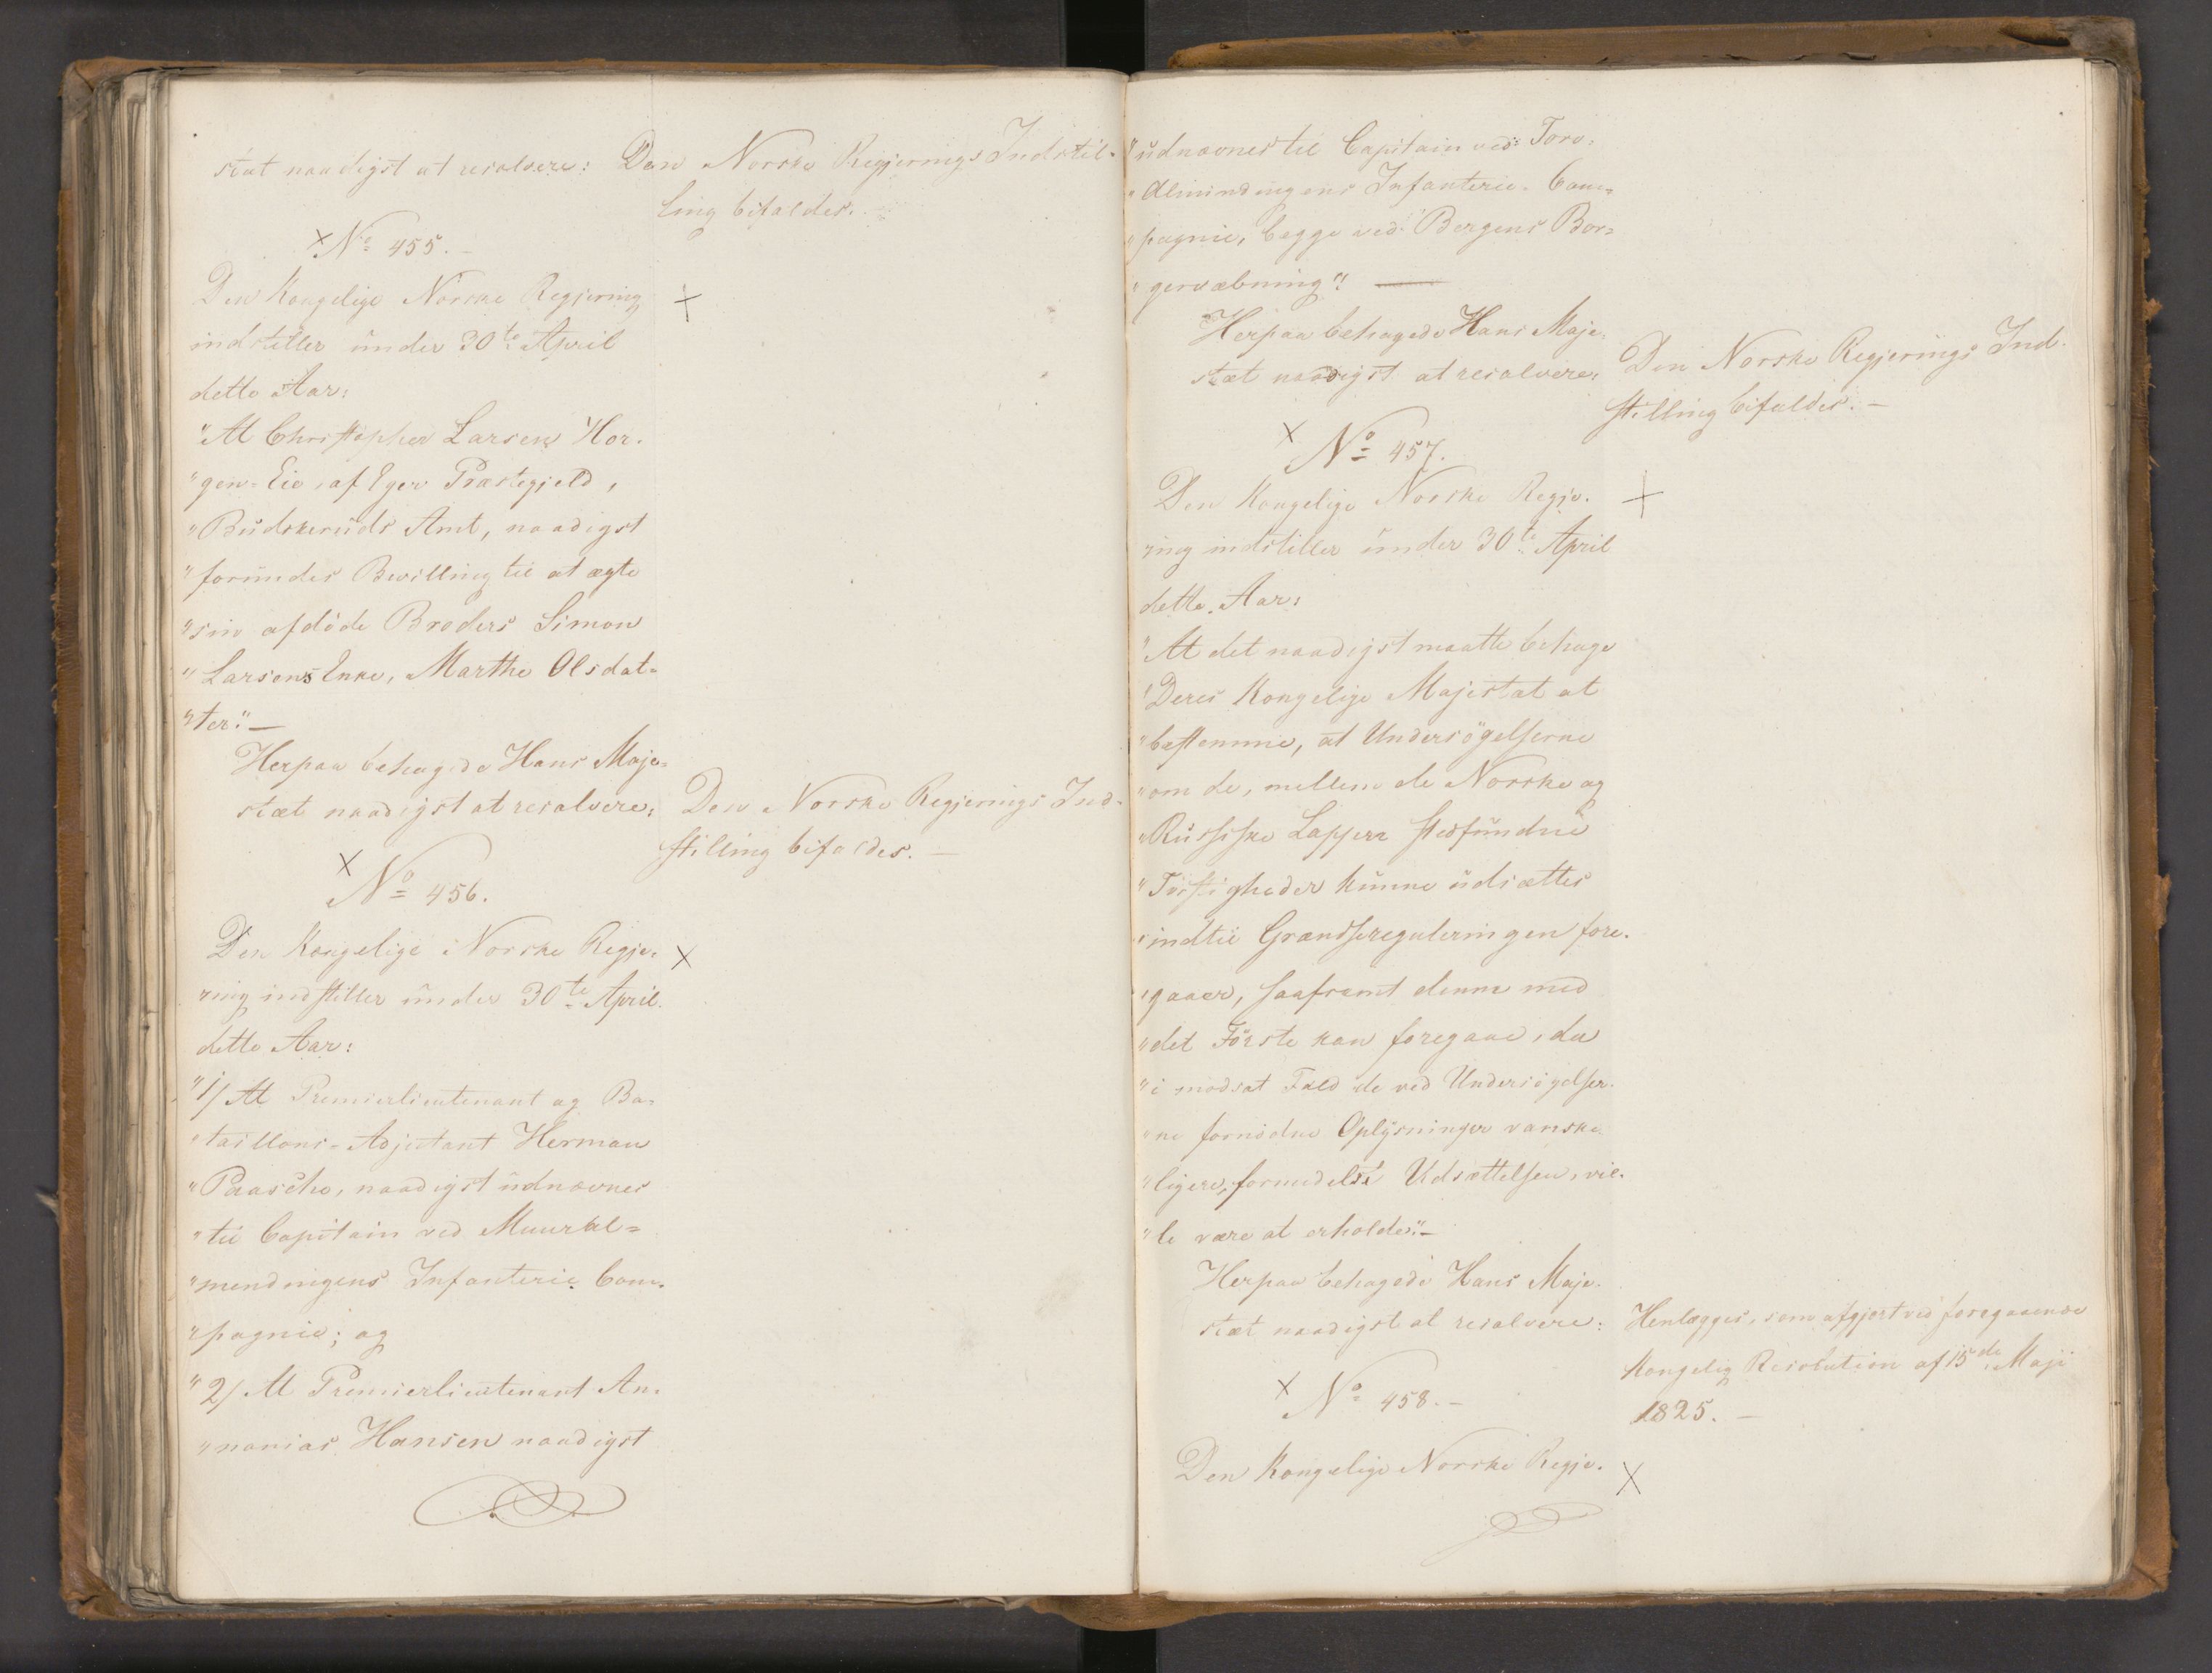 stæt naadigst at resolvere: Den Norske Regjerings Indstil-
ling bifaldes. -
× No 455. -
Den Kongelige Norske Regjering ×
indstiller under 30te April
dette Aar:
"At Christopher Larsen Hor-
"gen-Eie, af Eger Præstegjeld,
"Budskeruds Amt, naadigst
"forundes Bevilling til at ægte
"sin afdöde Broders Simon
"Larsens Enke, Marthe Olsdat-
"ter." -
Herpaa behagede Hans Maje-
stæt naadigst at resolvere: Den Norske Regjerings Ind-
stilling bifaldes. -
× No 456.
Den Kongelige Norske Regje- ×
ring indstiller under 30te April
dette Aar:
"1/ At Premierlieutenant og Ba-
"taillons-Adjutant Herman
"Paasche, naadigst udnævnes
"til Capitain ved Muural-
"mendingens Infanterie-Com-
"pagnie; og
"2/ At Premierlieutenant An-
"nanias Hansen naadigst
"udnævnes til Capitain ved Torv-
"Almindingens Infanterie-Com-
"pagnie, begge ved Bergens Bor-
"gervæbning."
Herpaa behagede Hans Maje-
stæt naadigst at resolvere: Den Norske Regjerings Ind-
stilling bifaldes. -
× No 457.
Den Kongelige Norske Regje- ×
ring indstiller under 30te April
dette Aar:
"At det naadigst maatte behage
"Deres Kongelige Majestæt at
"bestemme, at Undersögelserne
"om de, mellem de Norske og
"Russiske Lapper stedfundne
"Tvistigheder kunne udsættes
"indtil Grændsereguleringen fore-
"gaaer, saafremt denne med
"det Förste kan foregaae, da
"i modsat Fald de ved Undersögelser-
"ne fornödne Oplysninger vanske-
"ligere, formedelst Udsættelsen, vil-
"le være at erholde." -
Herpaa behagede Hans Maje-
stæt naadigst at resolvere: Henlægges, som afgjort ved foregaaende
Kongelig Resolution af 15de Maji
1825. -
× No 458. -
Den Kongelige Norske Regje- ×